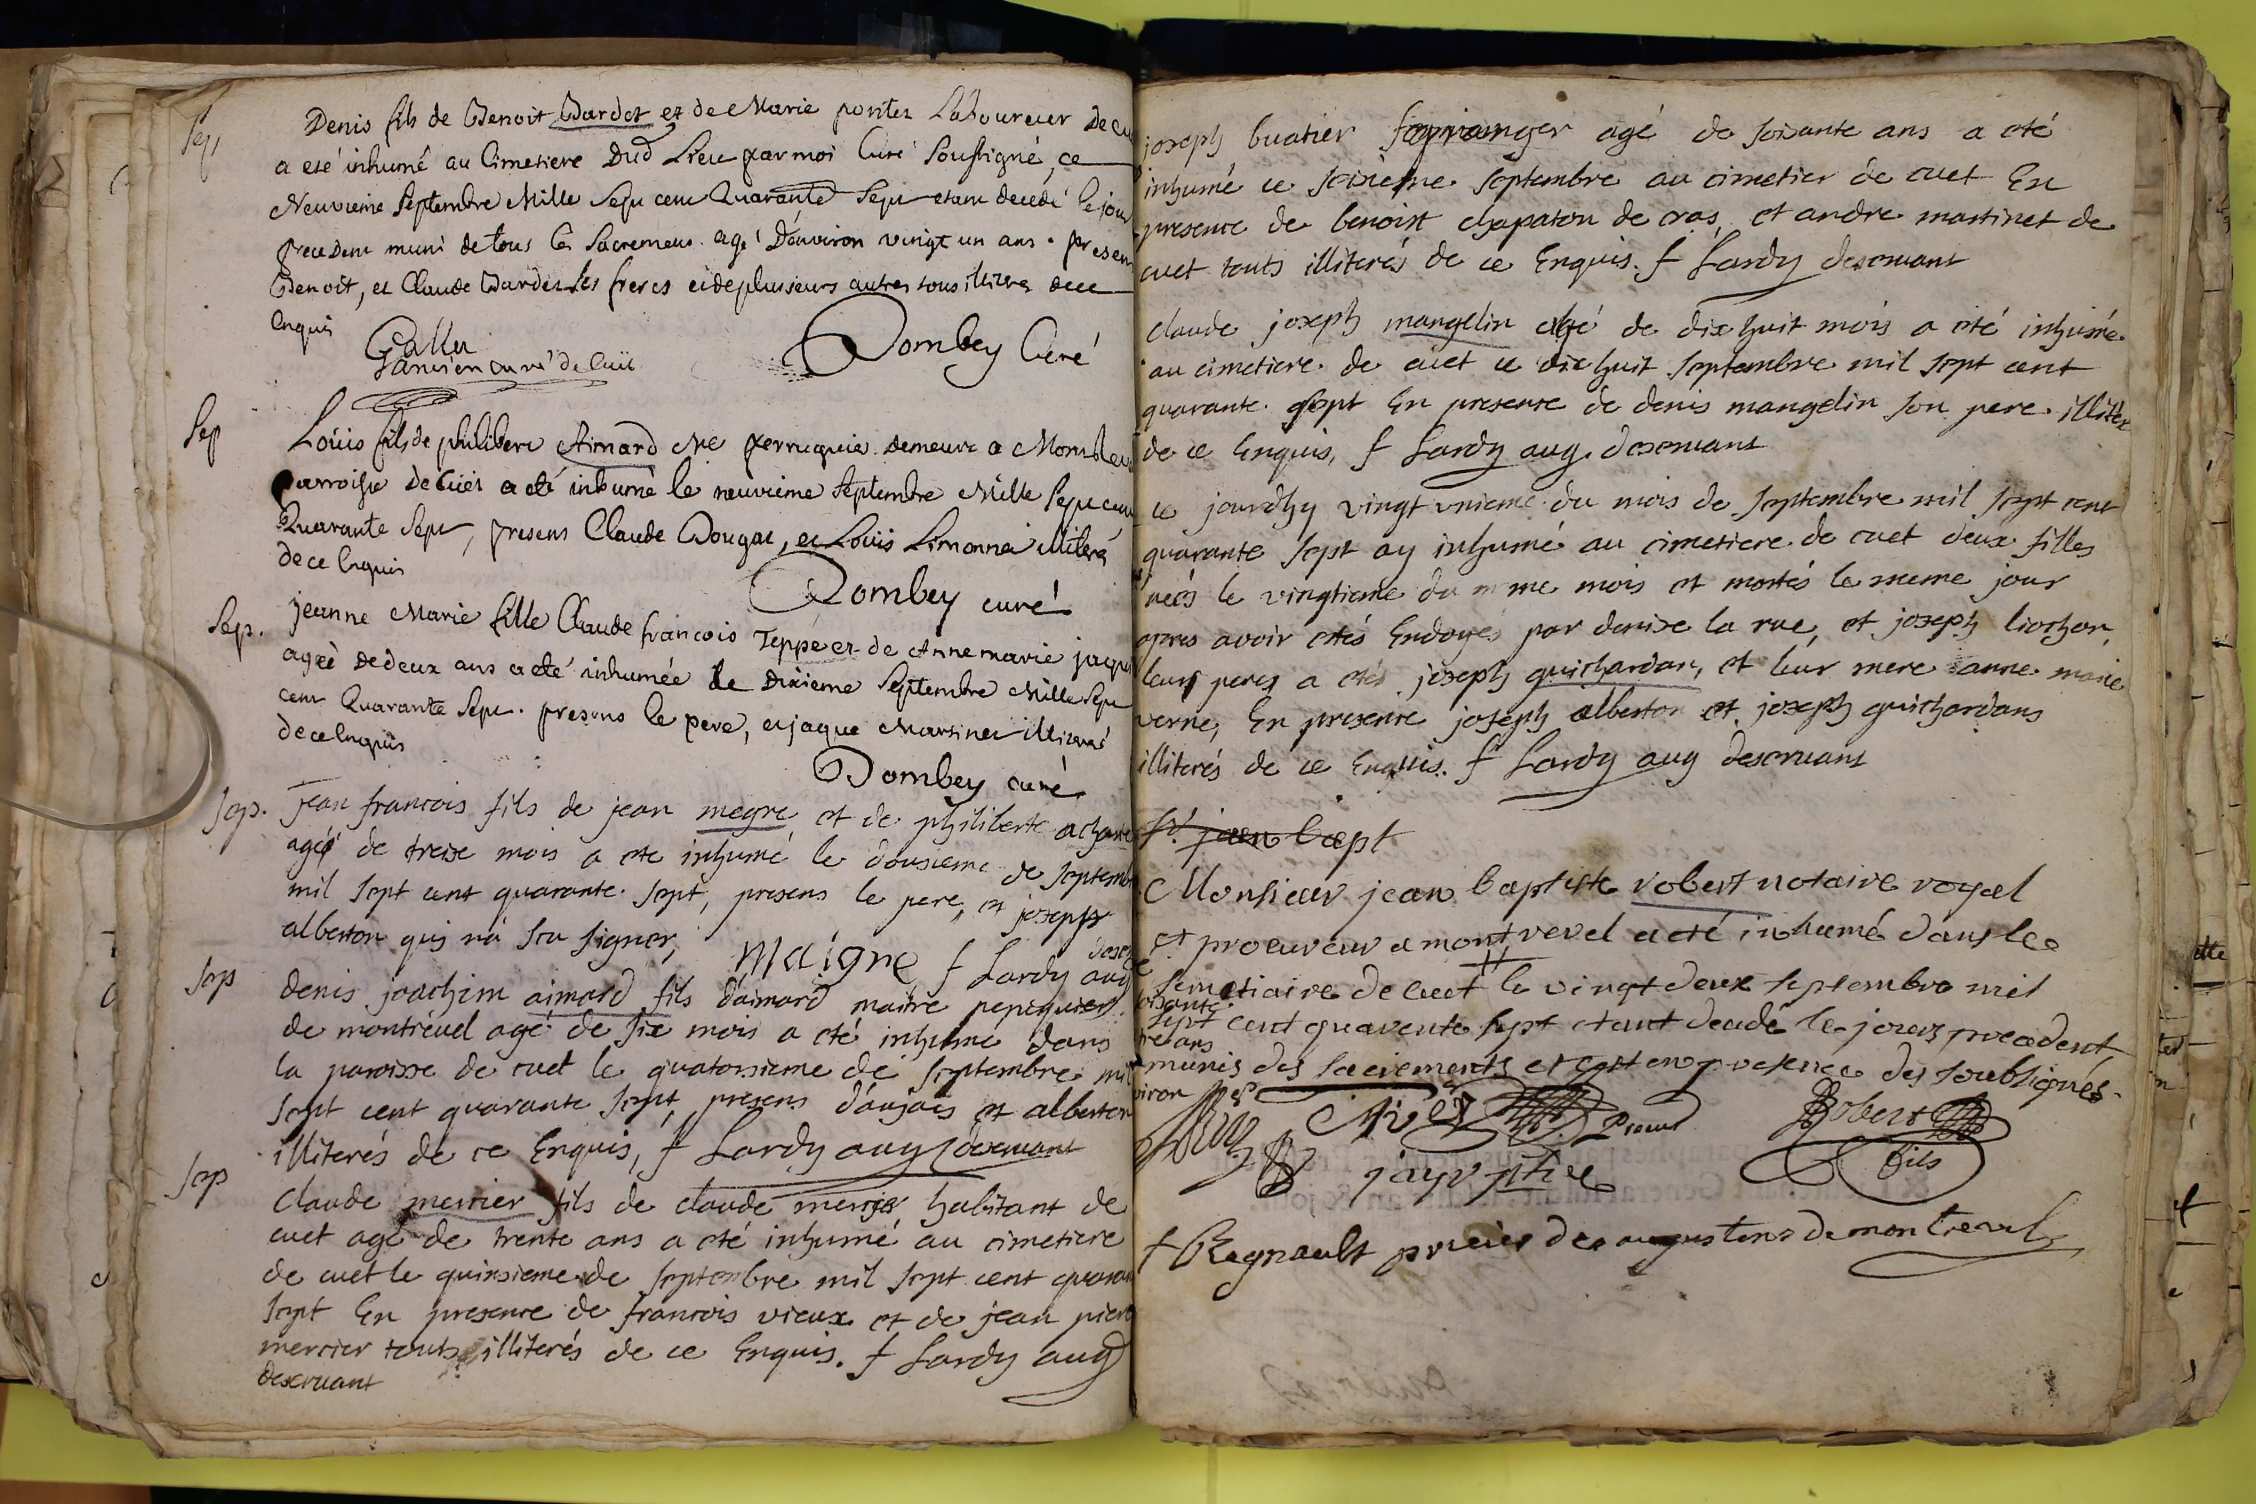 Sep
Denis fils de Benoit Bardet et de Marie pontes Laboureur De
a eté inhumé au Cimetiere Dud Lieu par moi Curé soussigné, ce
Neuvieme Septembre Mille Sept cent Quarante Sept etant decedé le jour
precedent muni de tous les sacremens agé d'environ vingt un ans. presen
Benoit, et Claude Bardet les freres et de plusieurs autres tous illiteres de ce
enquis
Dombey Curé
ancien curé de Cuët
Sep
Loüis fils de philibert Aimard Me perruquie demeurt a Mont
parroisse de Cuët a eté inhumé le neuvieme Septembre Mille Sept cent
Quarante Sept, presens Claude Dougat, et Loüis Limonne illiteré
de ce enquis
Dombey curé
Sep.
jeanne Marie fille Claude francois Teppe et de Anne marie
ageé de deux ans a eté inhumée le Dixieme Septembre Mille Sept
cent Quarante Sept. presens le pere, et jaque Martinet illiteré
de ce enquis
Dombey curé
Sep.
jean francois fils de jean megre et de philiberte
agé de treise mois a ete inhumé le dousieme de septemb
mil sept cent quarante sept, presens le pere, et joseph
alberton qui n'a scu signer,
Maigre f Lardy aug
Sep
denis joachim aimard fils d'aimard maitre
de montrévél agé de six mois a eté inhumé dans
la paroisse de cuet le quatorsieme de septembre mil
sept cent quarante sept, presens daujais et alberton
illiterés de ce Enquis, f Lardy aug deservant
Sep
Claude mercier fils de claude mercier habitant de
cuet agé de trente ans a eté inhumé au cimetiere
de cuet le quinsieme de septembre mil sept cent quaran
sept En presence de francois vieux et de jean pier
mercier touts illiterés de ce Enquis. f Lardy aug
deservant
joseph buatier agé de soixante ans a eté
inhumé ce seisieme septembre au cimetier de cuet En
presence de benoist chapaton de cras, et andre martinet de
cuet touts illiterés de ce Enquis. f Lardy deservant
Claude joseph mangelin agé de dix huit mois a eté inhumé
au cimetiere de cuet ce dix huit septembre mil sept cent
quarante sept En presence de denis mangelin son pere illiter
de ce Enquis, f Lardy aug. deservant
ce jourdhy vingt unieme du mois de septembre mil sept cent
quarante sept ay inhumé au cimetiere de cuet deux filles
neés le vingtieme du meme mois et mortés le meme jour
apres avoir etés Endoyés par denise la rue, et joseph liochon,
leurs peres a etés joseph guichardan, et leur mere anne marie
verne, En presence joseph alberton et joseph guichardans
illiterés de ce Enquis. f Lardy aug deservant
Sr. jean bapt
Monsieur jean baptiste robert notaire royal
et procureur a montrevel a eté inhumé dans le
semetiaire de cuet le vingt deux septembre mil
sept cent quarente sept etant decedé le jours precedent,
munis des sacrements et cest en presence des soubsignés.
Robert
fils
f Regnault prieur des augustins de montreveul